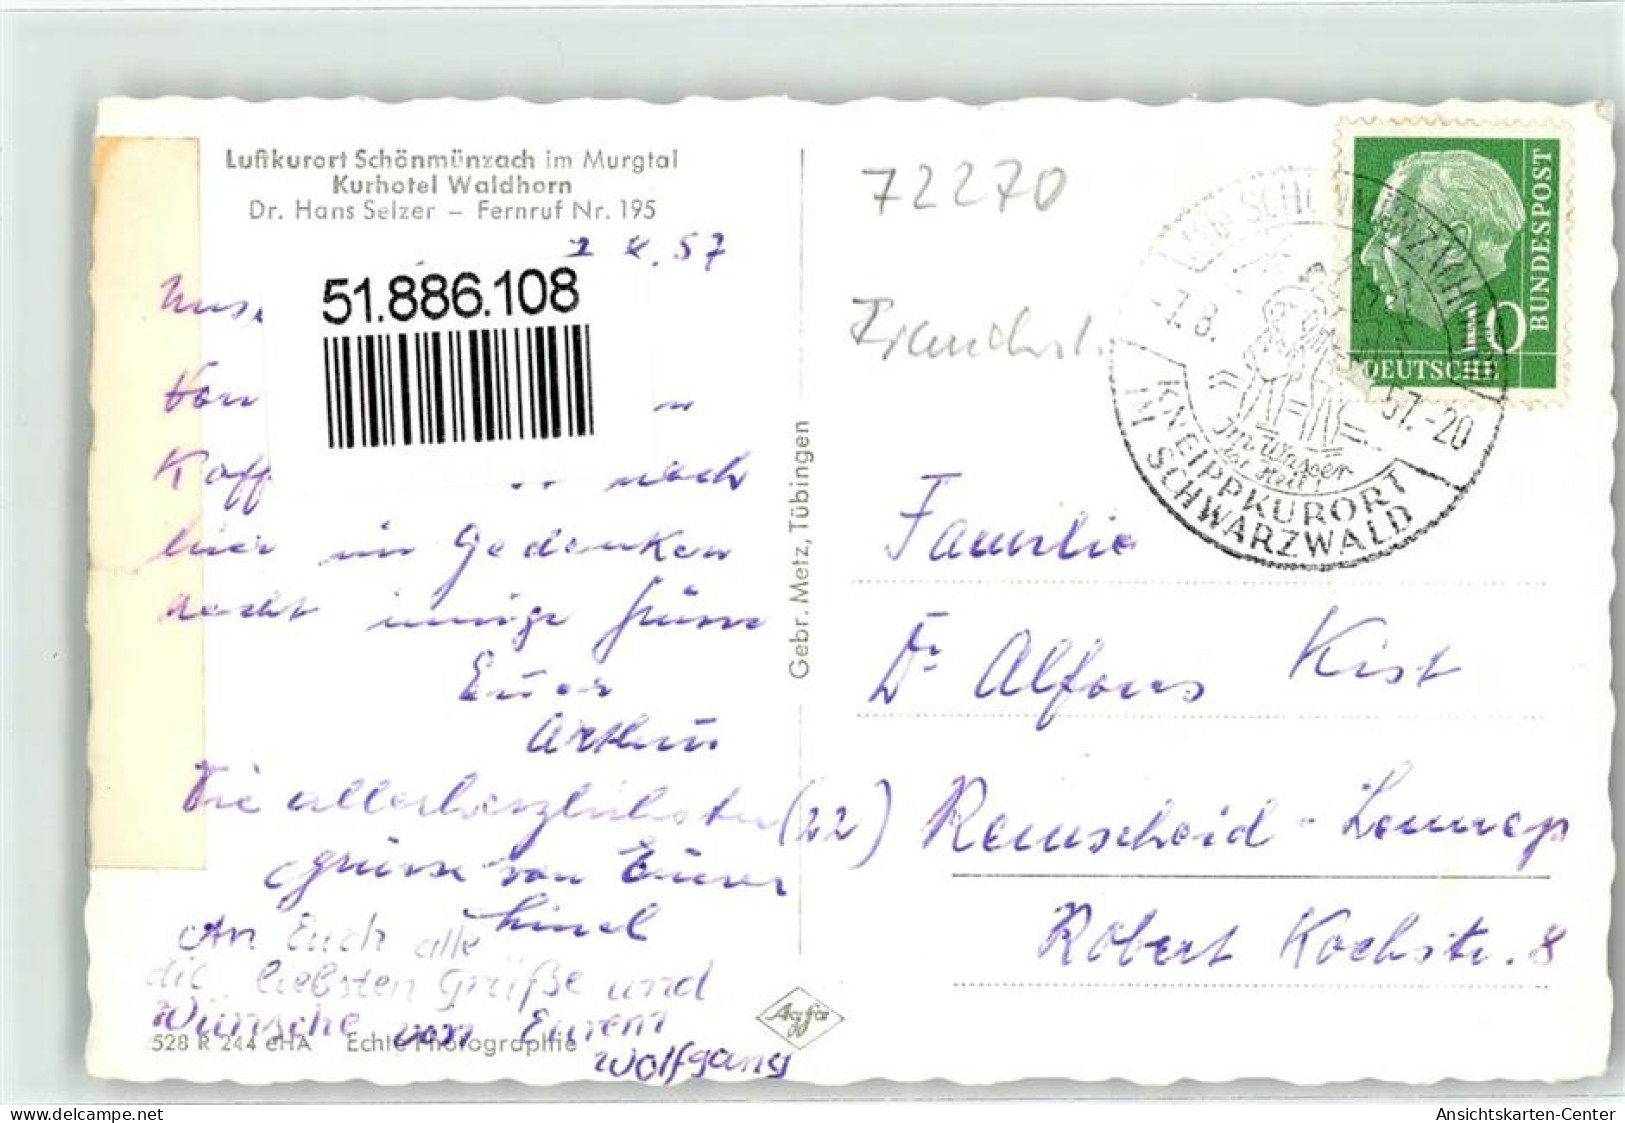 Luftkurort Schönmünzach im Murgtal
Kurhotel Waldhorn
Dr. Hans Selzer – Fernruf Nr. 195
8.57
51.886.108
Von
Kaff
noch
hier im Gedenken
recht innige Grüsse
Euer
Arthur
Die allerherzlichsten
Grüsse von Eurer
Liesel
An Euch alle
die liebsten Grüße und
Wünsche von Eurem
Wolfgang
528 R 244 eHA Echte Photographie
Gebr. Metz, Tübingen
Agfa
72270
BUNDESPOST
10
DEUTSCHE
-7.8.
57.-20
Im Wasser
das Heil!
KNEIPPKURORT
IM SCHWARZWALD
Familie
Dr. Alfons Kist
(22) Remscheid - Lennep
Robert Kochstr. 8
delcampe.net
Ansichtskarten-Center